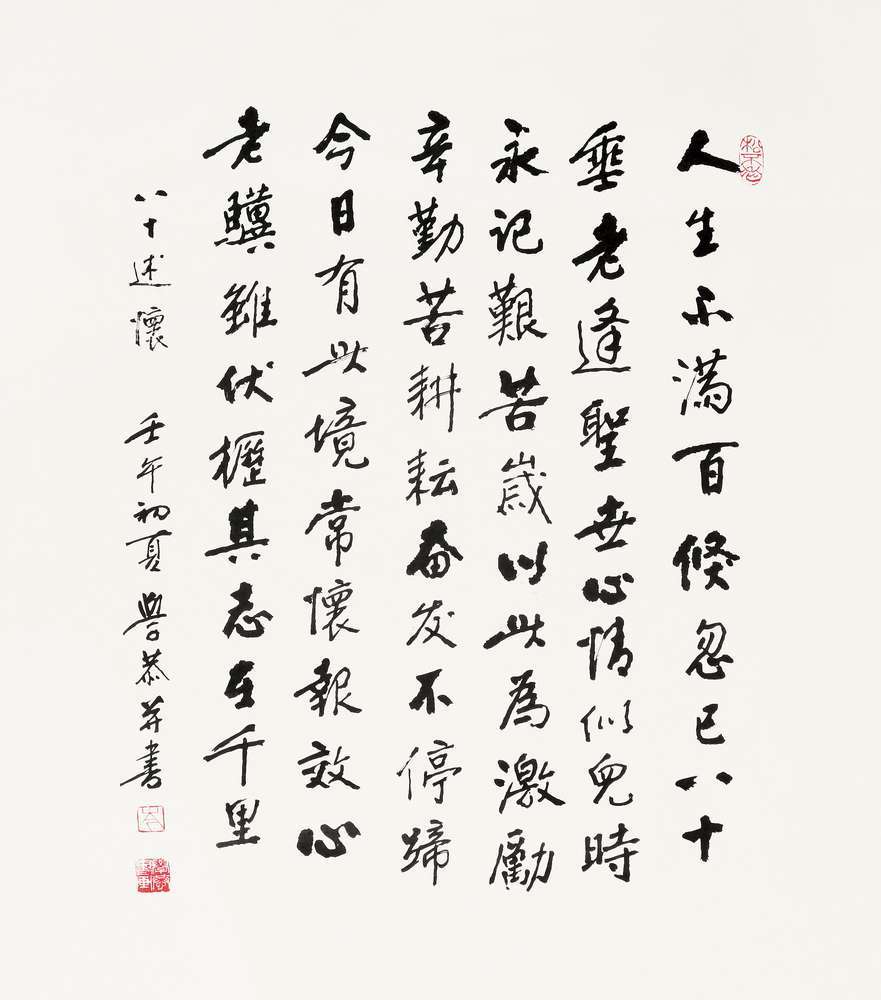 人生不滿百倏忽已八十
垂老逢聖世心情似兒時
永记艱苦歲以此為激勵
辛勤苦耕耘奋发不停蹄
今日有此境常懷報效心
老驥雖伏櫪其志在千里
八十述懷 壬午初夏 學恭并書